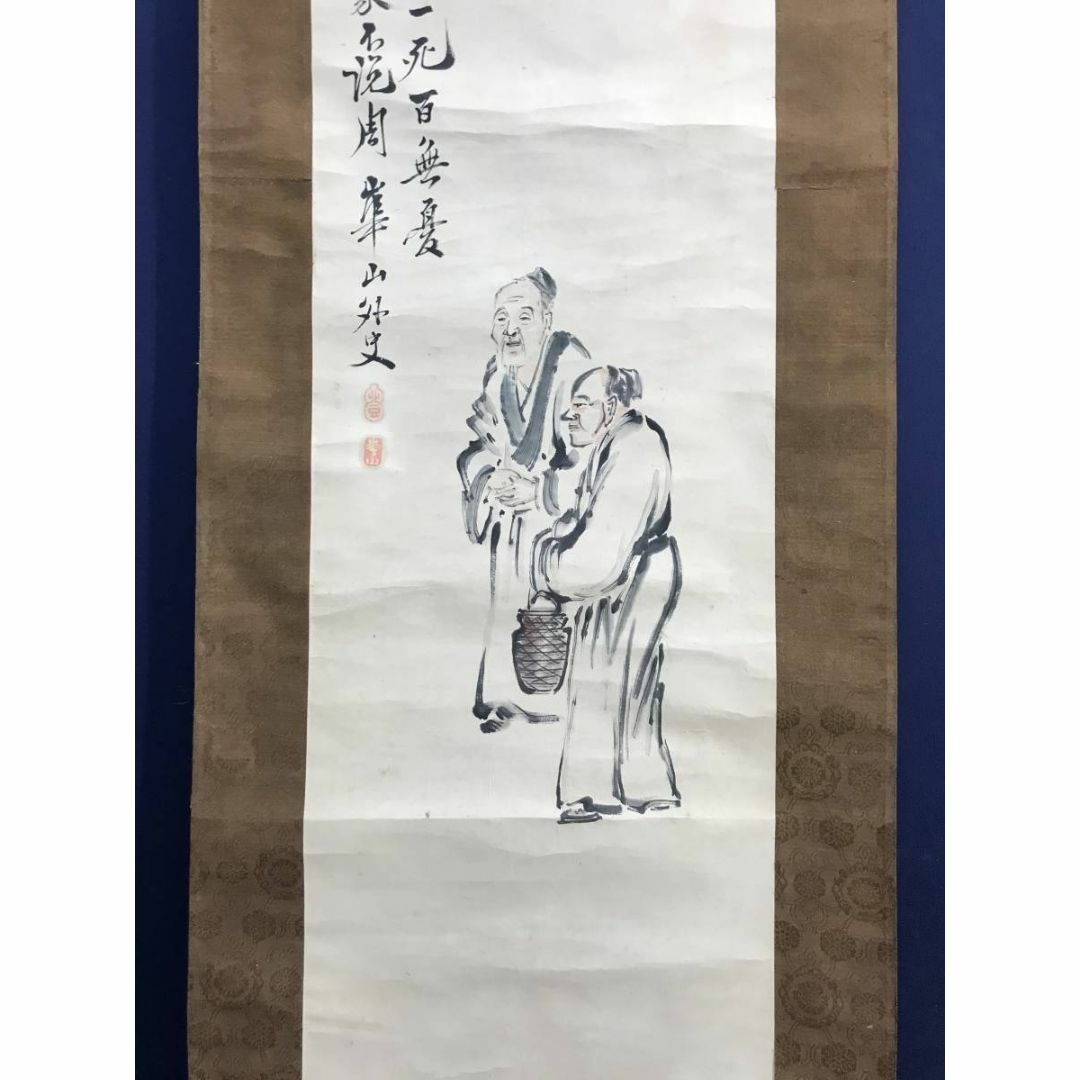 一死百無憂
不説周 崋山外史